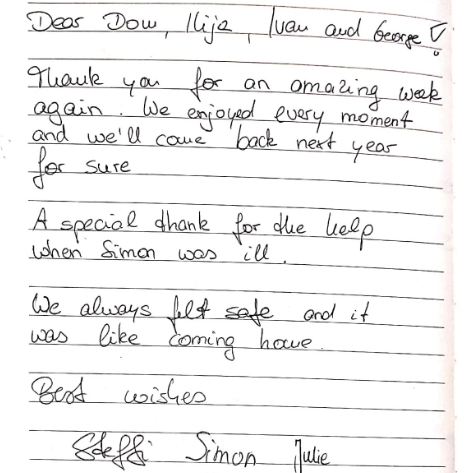 Dear Dom, Ilija, Ivan and George!
Thank you for an amazing week
again. We enjoyed every moment
and we'll come back next year
for sure
A special thank for the help
when Simon was ill.
We always felt safe and it
was like coming home.
Best wishes
Steffi Simon Julie